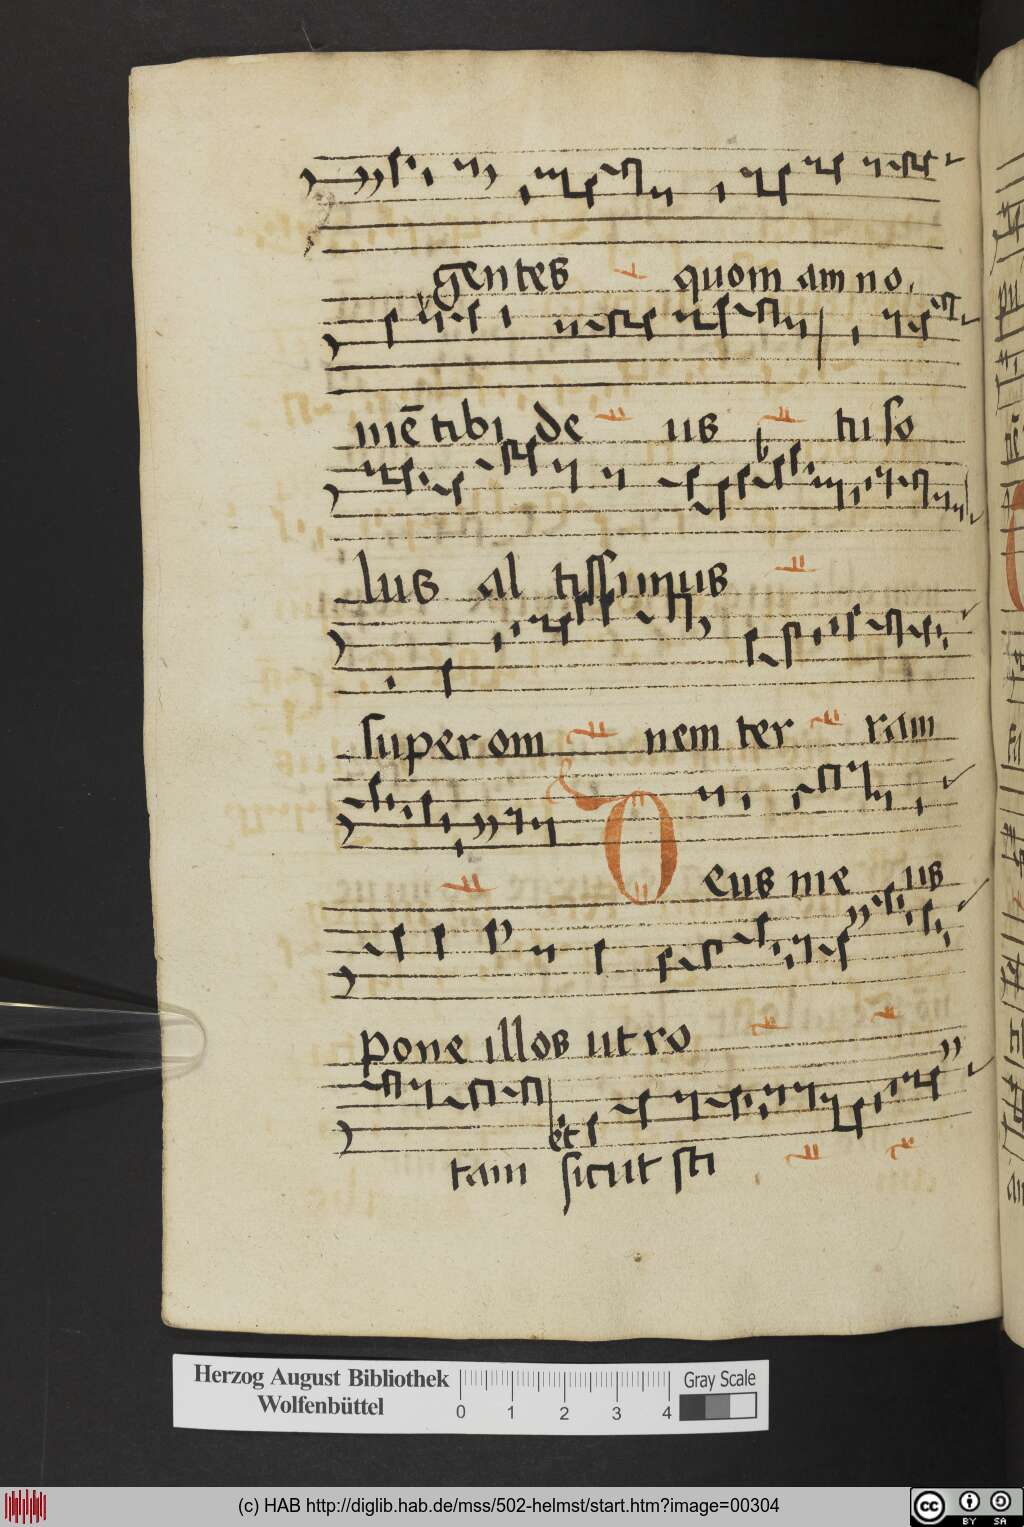 gentes quom am no.
mē tibi de us tu so
lus al tissimus
super om nem ter ram
Deus me us
pone illos ut ro
et
tam sicut sti
Herzog August Bibliothek
Wolfenbüttel
0 1 2 3 4
Gray Scale
(c) HAB http://diglib.hab.de/mss/502-helmst/start.htm?image=00304
cc BY SA